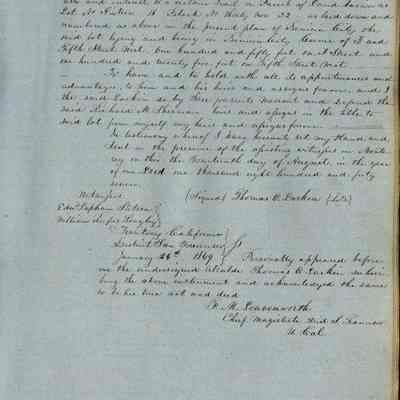 and interest to a certain Tract or Parcel of Land known as
Lot No Sixteen 16 Block No thirty two 32 as laid down and
numbered as above on the ground plan of Benicia City the
said lot lying and being in Benicia City Corner of I and
Fifth Street West one hundred and fifty feet on I Street and
one hundred and twenty five feet on Fifth Street West
To have and to hold with all its appurtenances and
advantages to him and his heirs and assigns forever and I
the said Larkin do by these presents warrant and defend the
said Richard M. Sherman heirs and assigns in the title to
said lot from myself my heirs and assigns forever
In testimony whereof I have hereunto set my Hand and
Seal in the presence of the witnesses in Monte
rey on this the fourteenth day of August in the year
of our Lord one thousand eight hundred and forty
seven
Witnesses (Signed) Thomas O. Larkin
William Rufus Longley
Territory California
District San Francisco
January 24th 1849 Personally appeared before
me the undersigned Alcalde Thomas O. Larkin subscri
bing the above instrument and acknowledged the same
to be his true act and deed
T. M. Leavenworth
Chief Magistrate Dist S. Francisco
U. Cal.